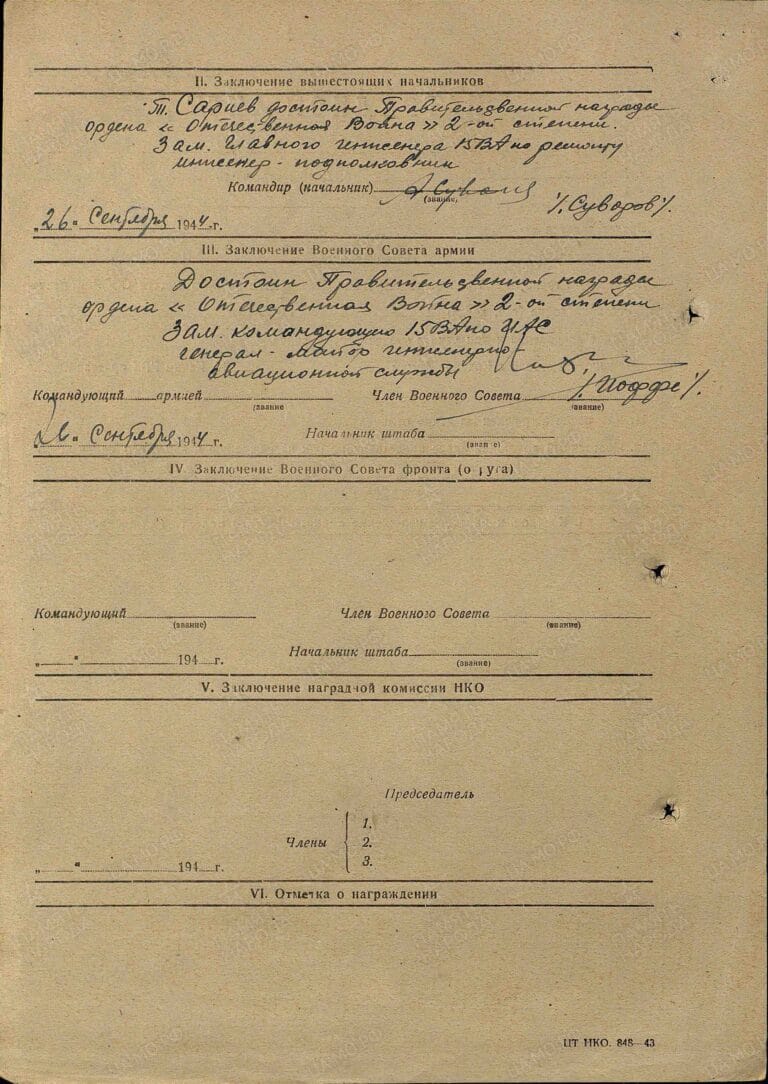 II. Заключение вышестоящих начальников
т. Сариев достоин Правительственной награды
ордена « Отечественная Война » 2-ой степени.
Зам. Главного инженера 15ВА по ремонту
инженер - подполковник
Командир (начальник)
(звание)
/.Суворов/.
„26" Сентября 1944 г.
III. Заключение Военного Совета армии
Достоин Правительственной награды
ордена « Отечественная Война » 2-ой степени
Зам. командующего 15ВА по ИАС
генерал - майор инженерно-
авиационной службы
/.Иоффе/.
Командующий армией Член Военного Совета
(звание (звание)
Сентября 1944 г. Начальник штаба
(звание)
IV. Заключение Военного Совета фронта (округа)
Командующий Член Военного Совета
(звание) (звание)
„ " 194 г. Начальник штаба
(звание)
V. Заключение наградной комиссии НКО
Председатель
Члены
1.
2.
3.
„ " 194 г.
VI. Отметка о награждении
ЦТ НКО. 848—43